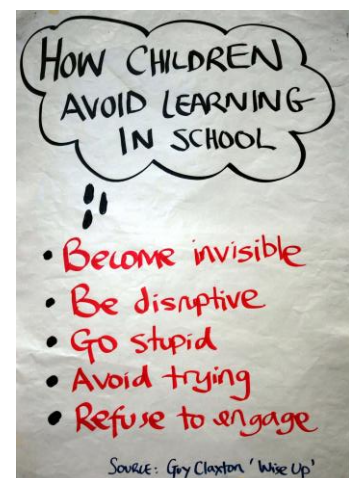 HOW CHILDREN
AVOID LEARNING
IN SCHOOL
• Become invisible
• Be disruptive
• Go stupid
• Avoid trying
• Refuse to engage
SOURCE: Guy Claxton 'Wise Up'